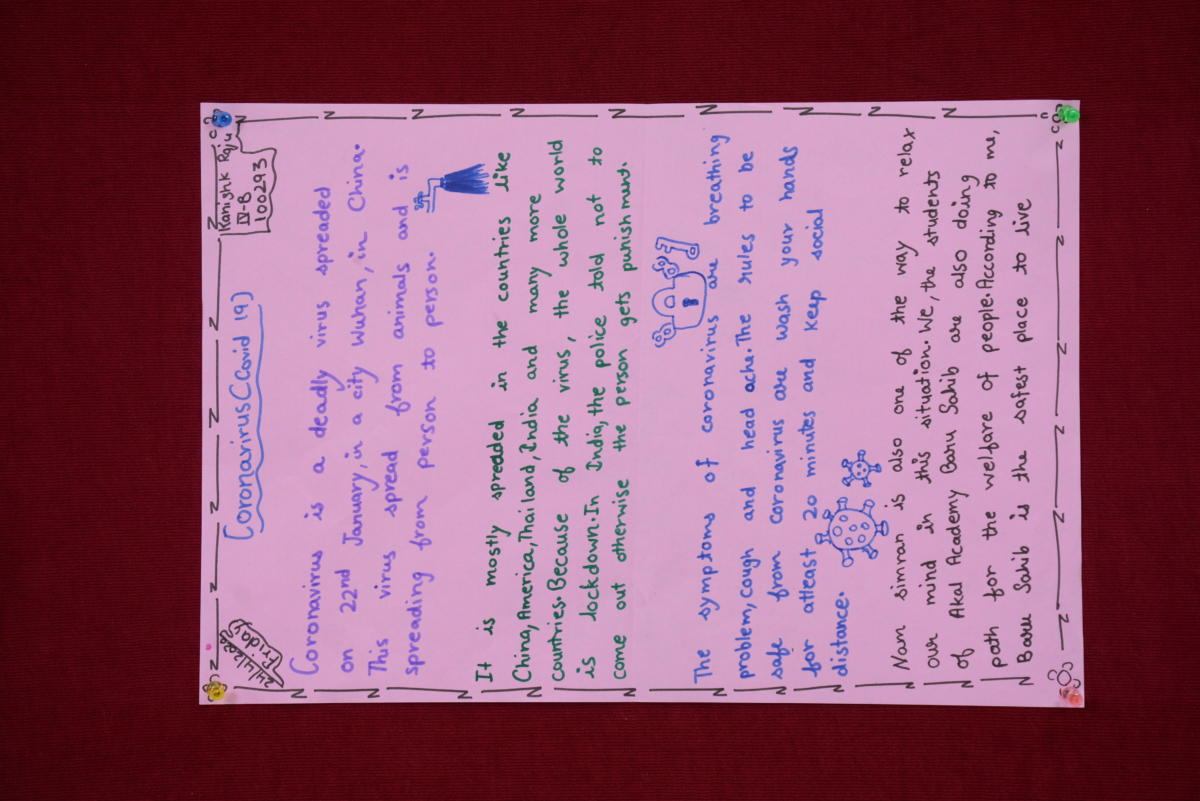 24/4/2020
(Friday)
Kanishk Raju
IV-B
100293
Coronavirus(Covid 19)
Coronavirus is a deadly virus spreaded
on 22nd January, in a city Wuhan, in China.
This virus spread from animals and is
spreading from person to person.
It is mostly spreaded in the countries like
China, America, Thailand, India and many more
countries. Because of the virus, the whole world
is lockdown. In India, the police told not to
come out otherwise the person gets punishment.
The symptoms of coronavirus are breathing
problem, cough and head ache. The rules to be
safe from coronavirus are wash your hands
for atleast 20 minutes and keep social
distance.
Nam simran is also one of the way to relax
our mind in this situation. We, the students
of Akal Academy Baru Sahib are also doing
path for the welfare of people. According to me,
Baru Sahib is the safest place to live